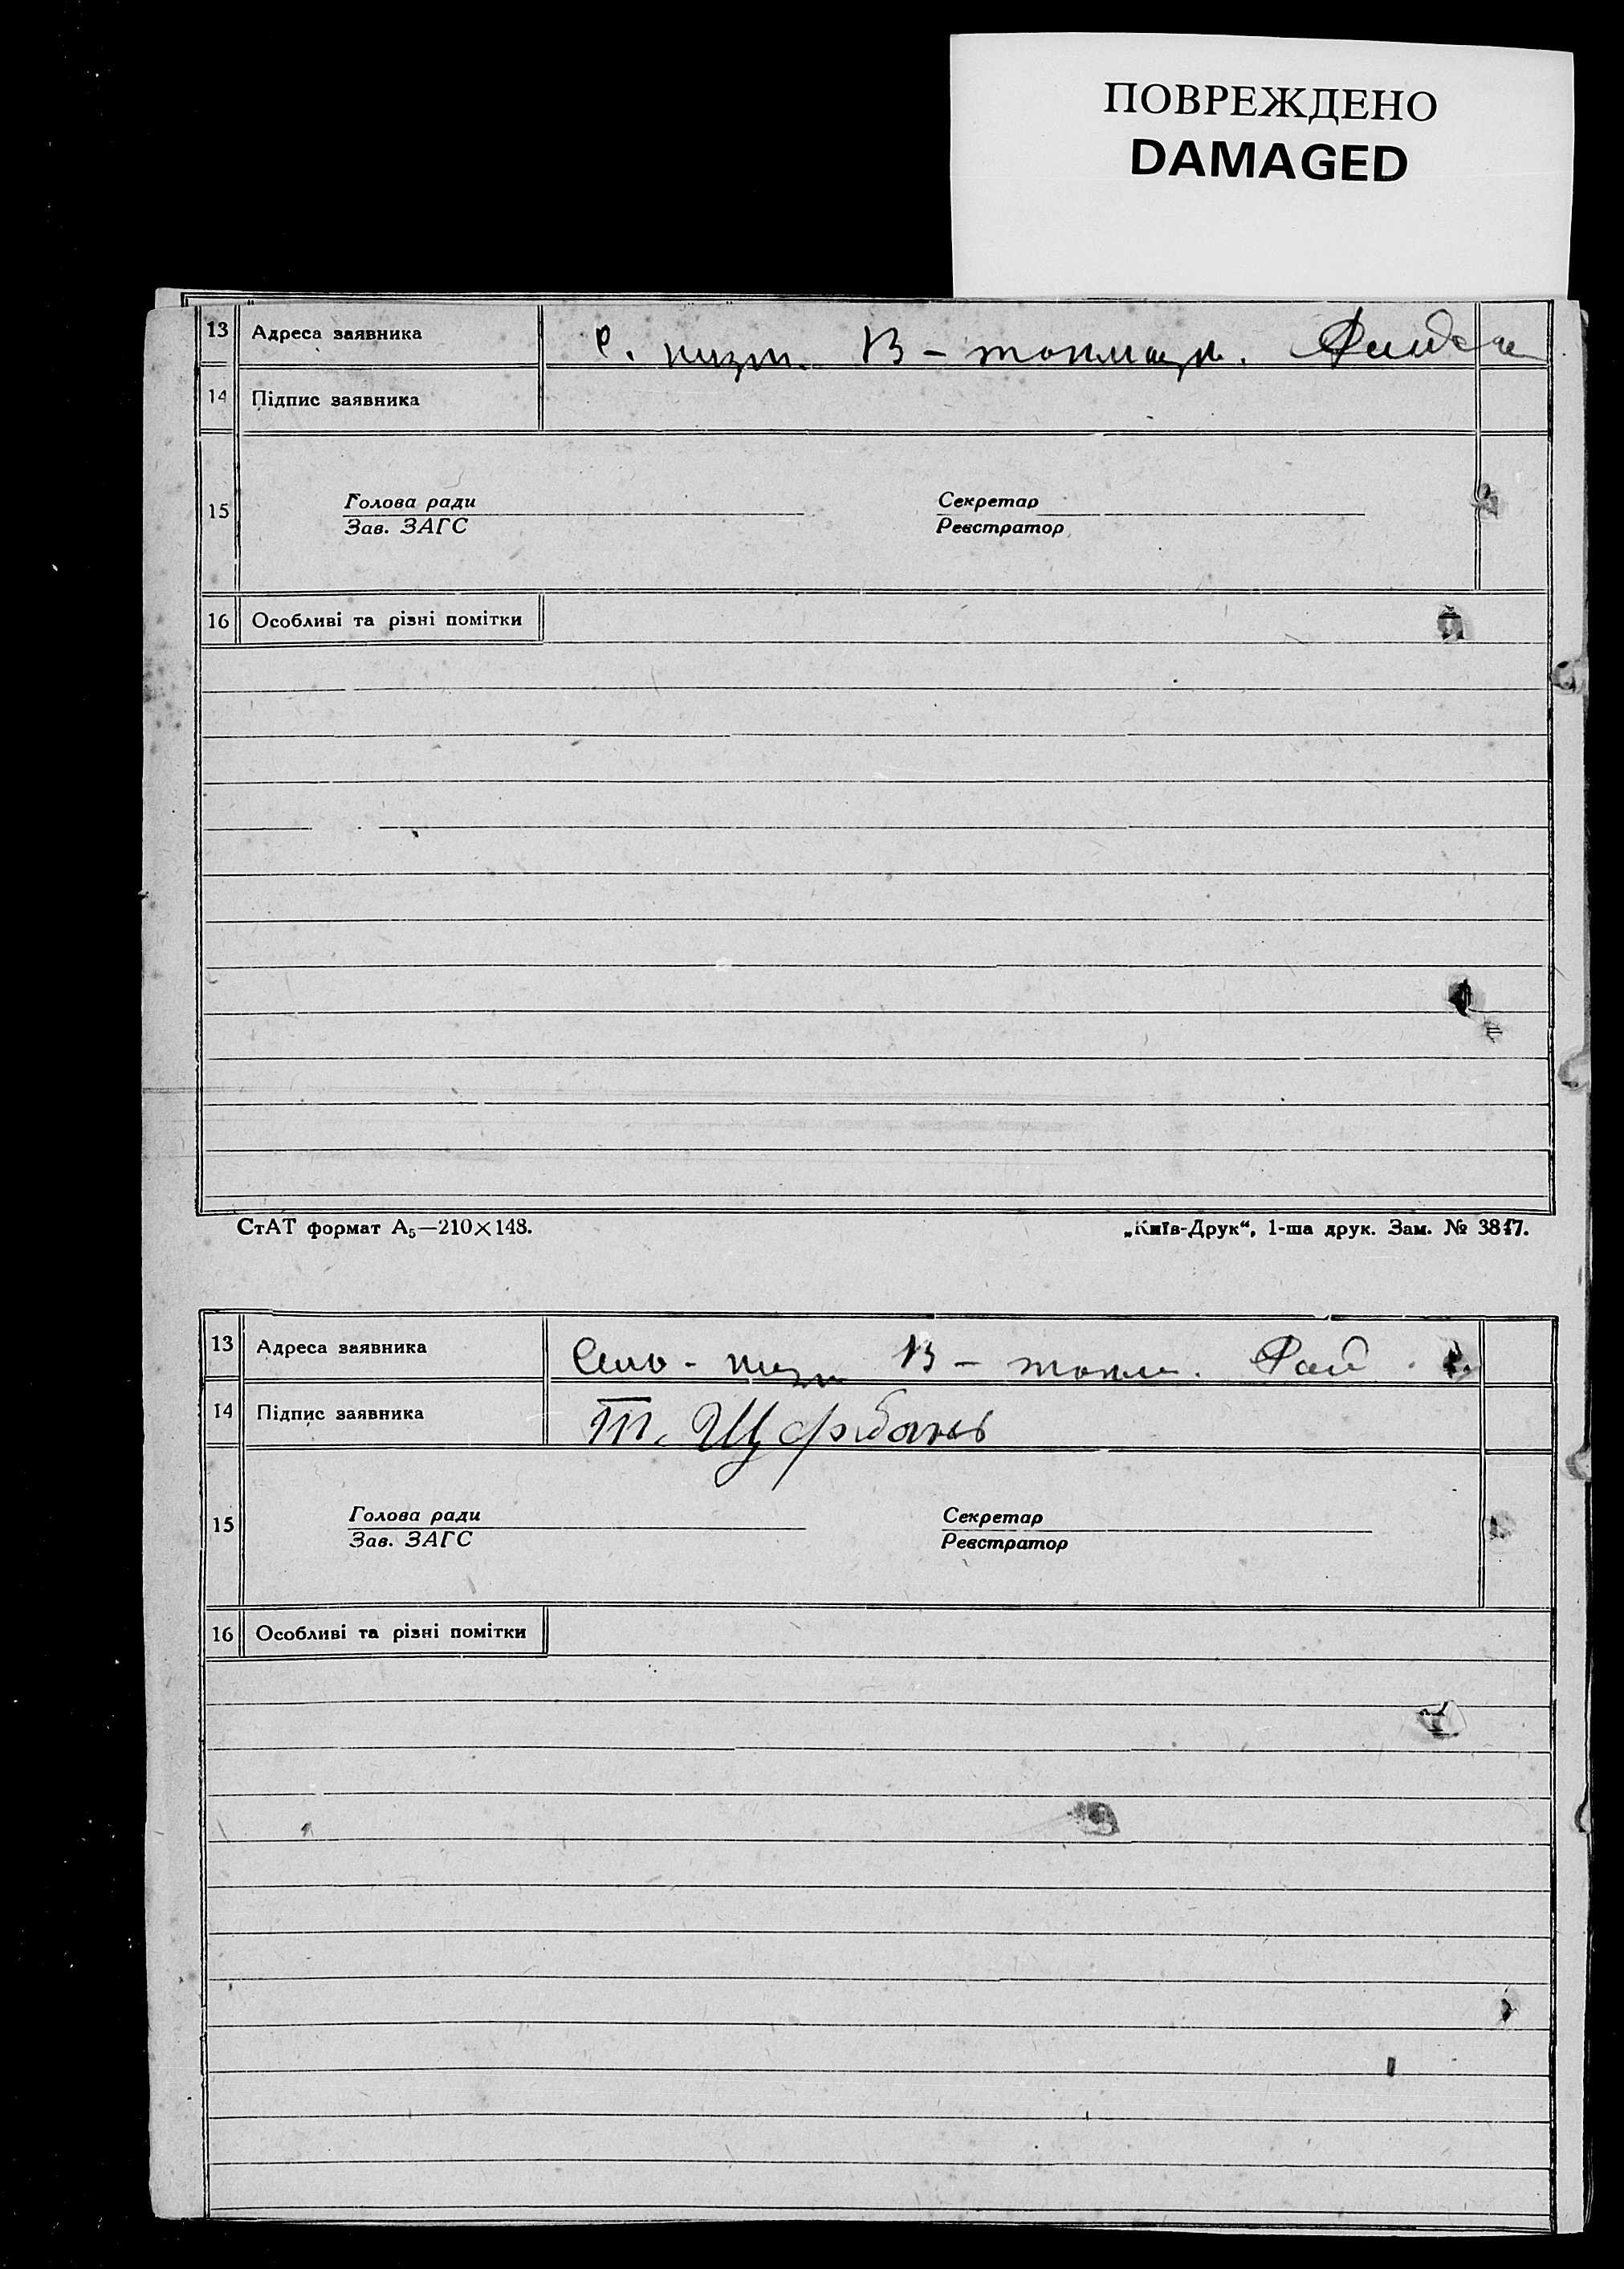 ПОВРЕЖДЕНО
DAMAGED
13 Адреса заявника с. В-токмацк.
14 Підпис заявника
15 Голова ради Секретар
Зав. ЗАГС Реєстратор
16 Особливі та різні помітки
СтАТ формат А₅—210×148. „Київ-Друк“, 1-ша друк. Зам. № 3847.
13 Адреса заявника Село - В - токм.
14 Підпис заявника Т. Щербань
15 Голова ради Секретар
Зав. ЗАГС Реєстратор
16 Особливі та різні помітки